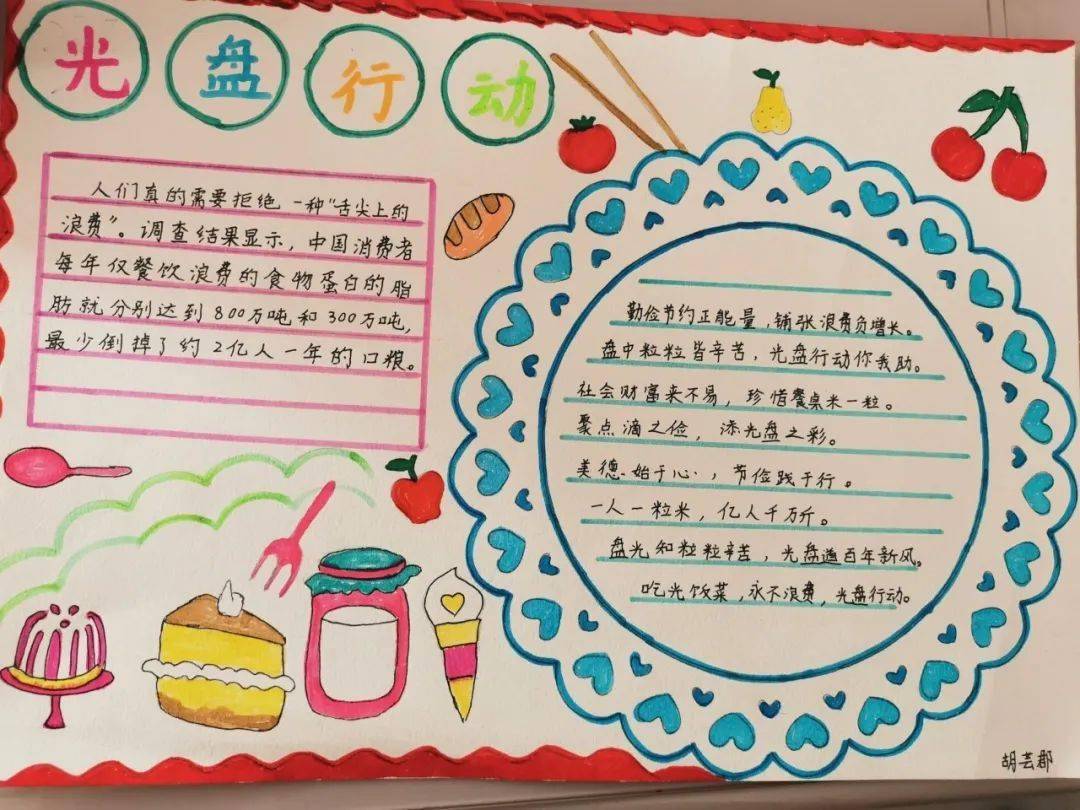 光盘行动
人们真的需要拒绝一种“舌尖上的
浪费”。调查结果显示，中国消费者
每年仅餐饮浪费的食物蛋白的脂
肪就分别达到800万吨和300万吨，
最少倒掉了约2亿人一年的口粮。
勤俭节约正能量，铺张浪费负增长。
盘中粒粒皆辛苦，光盘行动你我助。
社会财富来不易，珍惜餐桌米一粒。
聚点滴之俭，添光盘之彩。
美德始于心，节俭践于行。
一人一粒米，亿人千万斤。
盘光知粒粒辛苦，光盘遍百年新风。
吃光饭菜，永不浪费，光盘行动。
胡芸郡